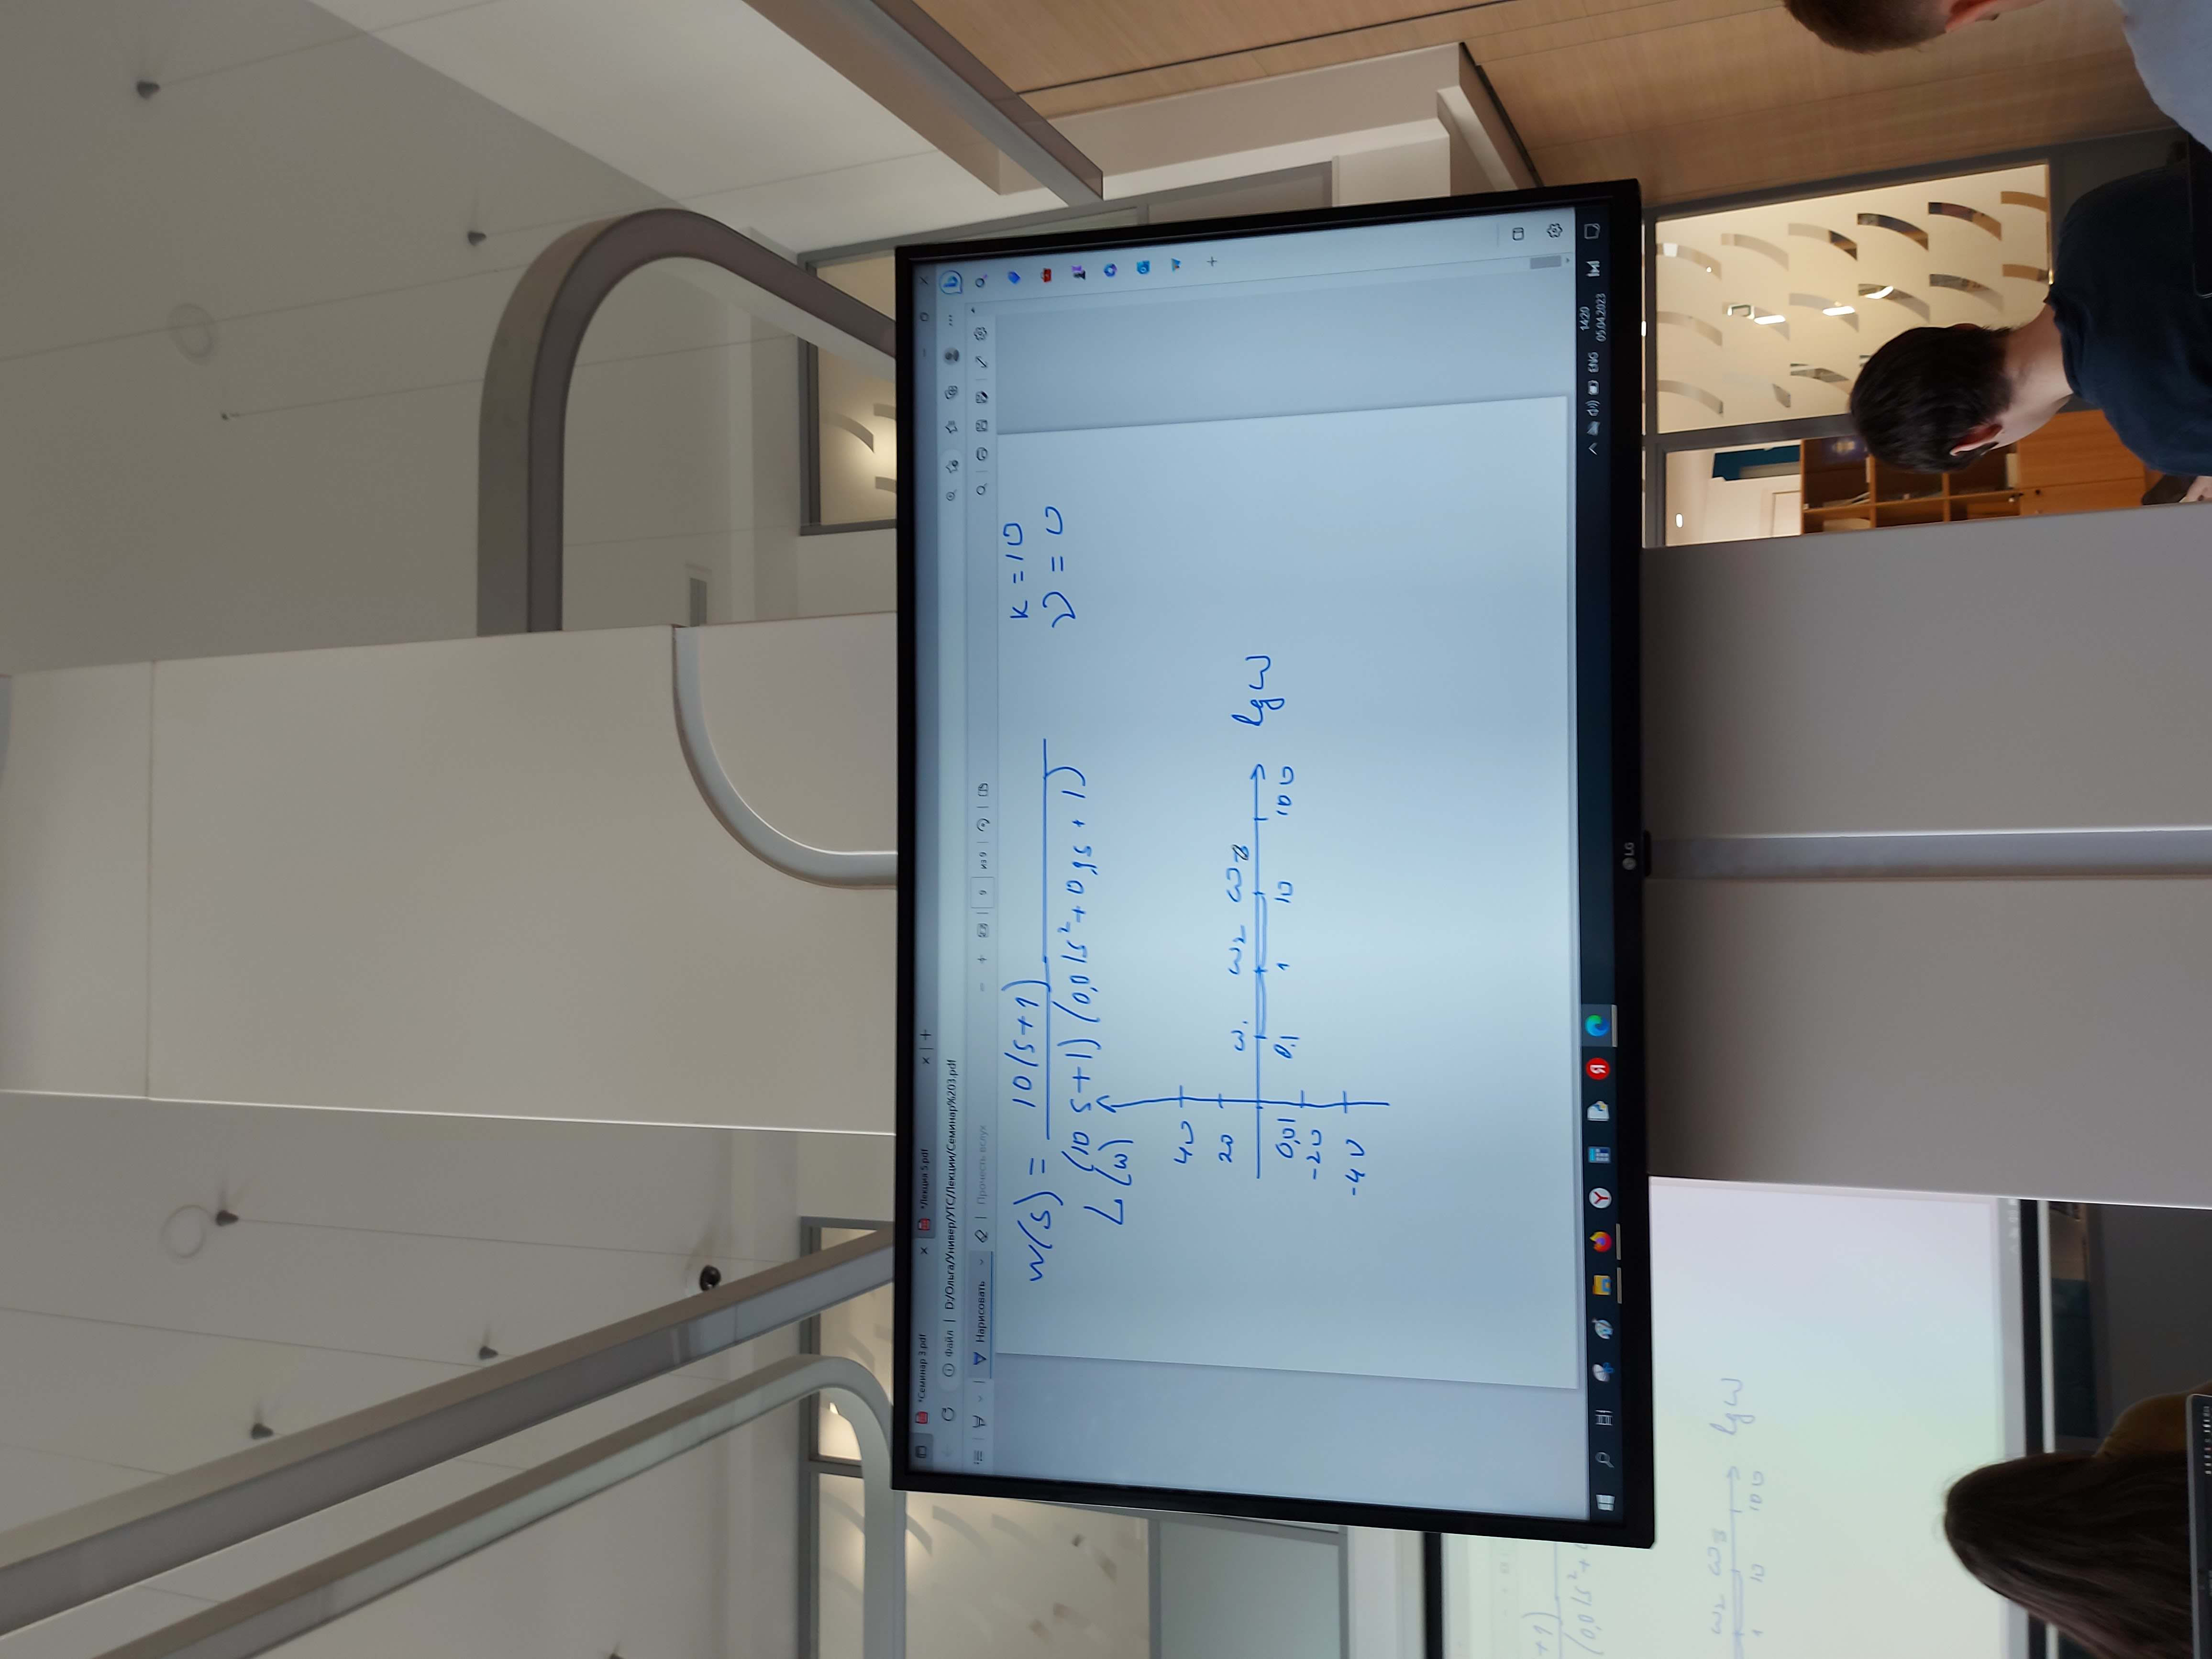 *Семинар 3.pdf
*Лекция 5.pdf
Файл | D:/Ольга/Универ/УТС/Лекции/Семинар%203.pdf
Нарисовать
Прочесть вслух
9 из 9
W(s) = 10(s+1) / (10s+1)(0,01s²+0,1s+1)
K = 10
ν = 0
L(ω)
40
20
ω₁ ω₂ ω₃
lgω
0,01 0.1 1 10 100
-20
-40
ENG
14:20
05.04.2023
LG
+1)
(0,01s²+
ω₂ ω₃
lgω
1 10 100